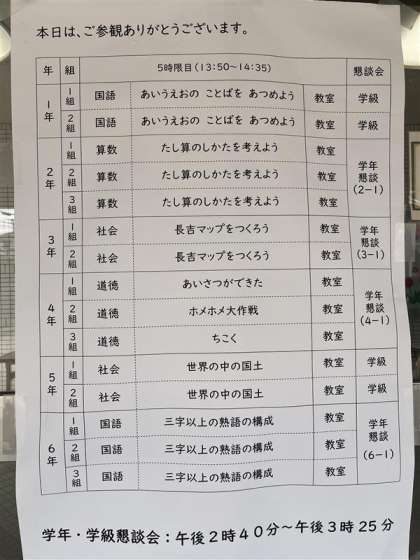 本日は、ご参観ありがとうございます。
年 組 5時限目(13:50~14:35) 懇談会
1年 1組 国語 あいうえおの ことばを あつめよう 教室 学級
2組 国語 あいうえおの ことばを あつめよう 教室 学級
2年 1組 算数 たし算のしかたを考えよう 教室 学年懇談(2-1)
2組 算数 たし算のしかたを考えよう 教室
3組 算数 たし算のしかたを考えよう 教室
3年 1組 社会 長吉マップをつくろう 教室 学年懇談(3-1)
2組 社会 長吉マップをつくろう 教室
4年 1組 道徳 あいさつができた 教室 学年懇談(4-1)
2組 道徳 ホメホメ大作戦 教室
3組 道徳 ちこく 教室
5年 1組 社会 世界の中の国土 教室 学級
2組 社会 世界の中の国土 教室 学級
6年 1組 国語 三字以上の熟語の構成 教室 学年懇談(6-1)
2組 国語 三字以上の熟語の構成 教室
3組 国語 三字以上の熟語の構成 教室
学年・学級懇談会:午後2時40分~午後3時25分